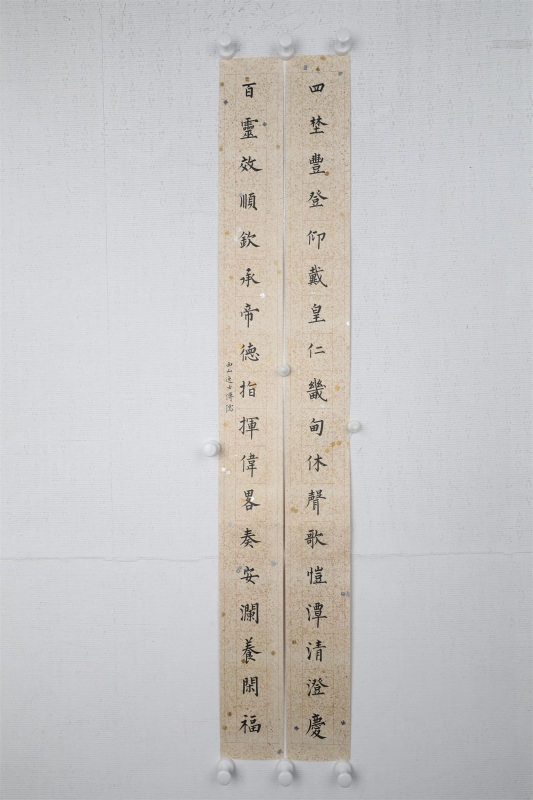 四埜豐登仰戴皇仁畿甸休聲歌愷潭清澄慶
百靈效順欽承帝德指揮偉畧奏安瀾養閑福
西山逸士溥儒